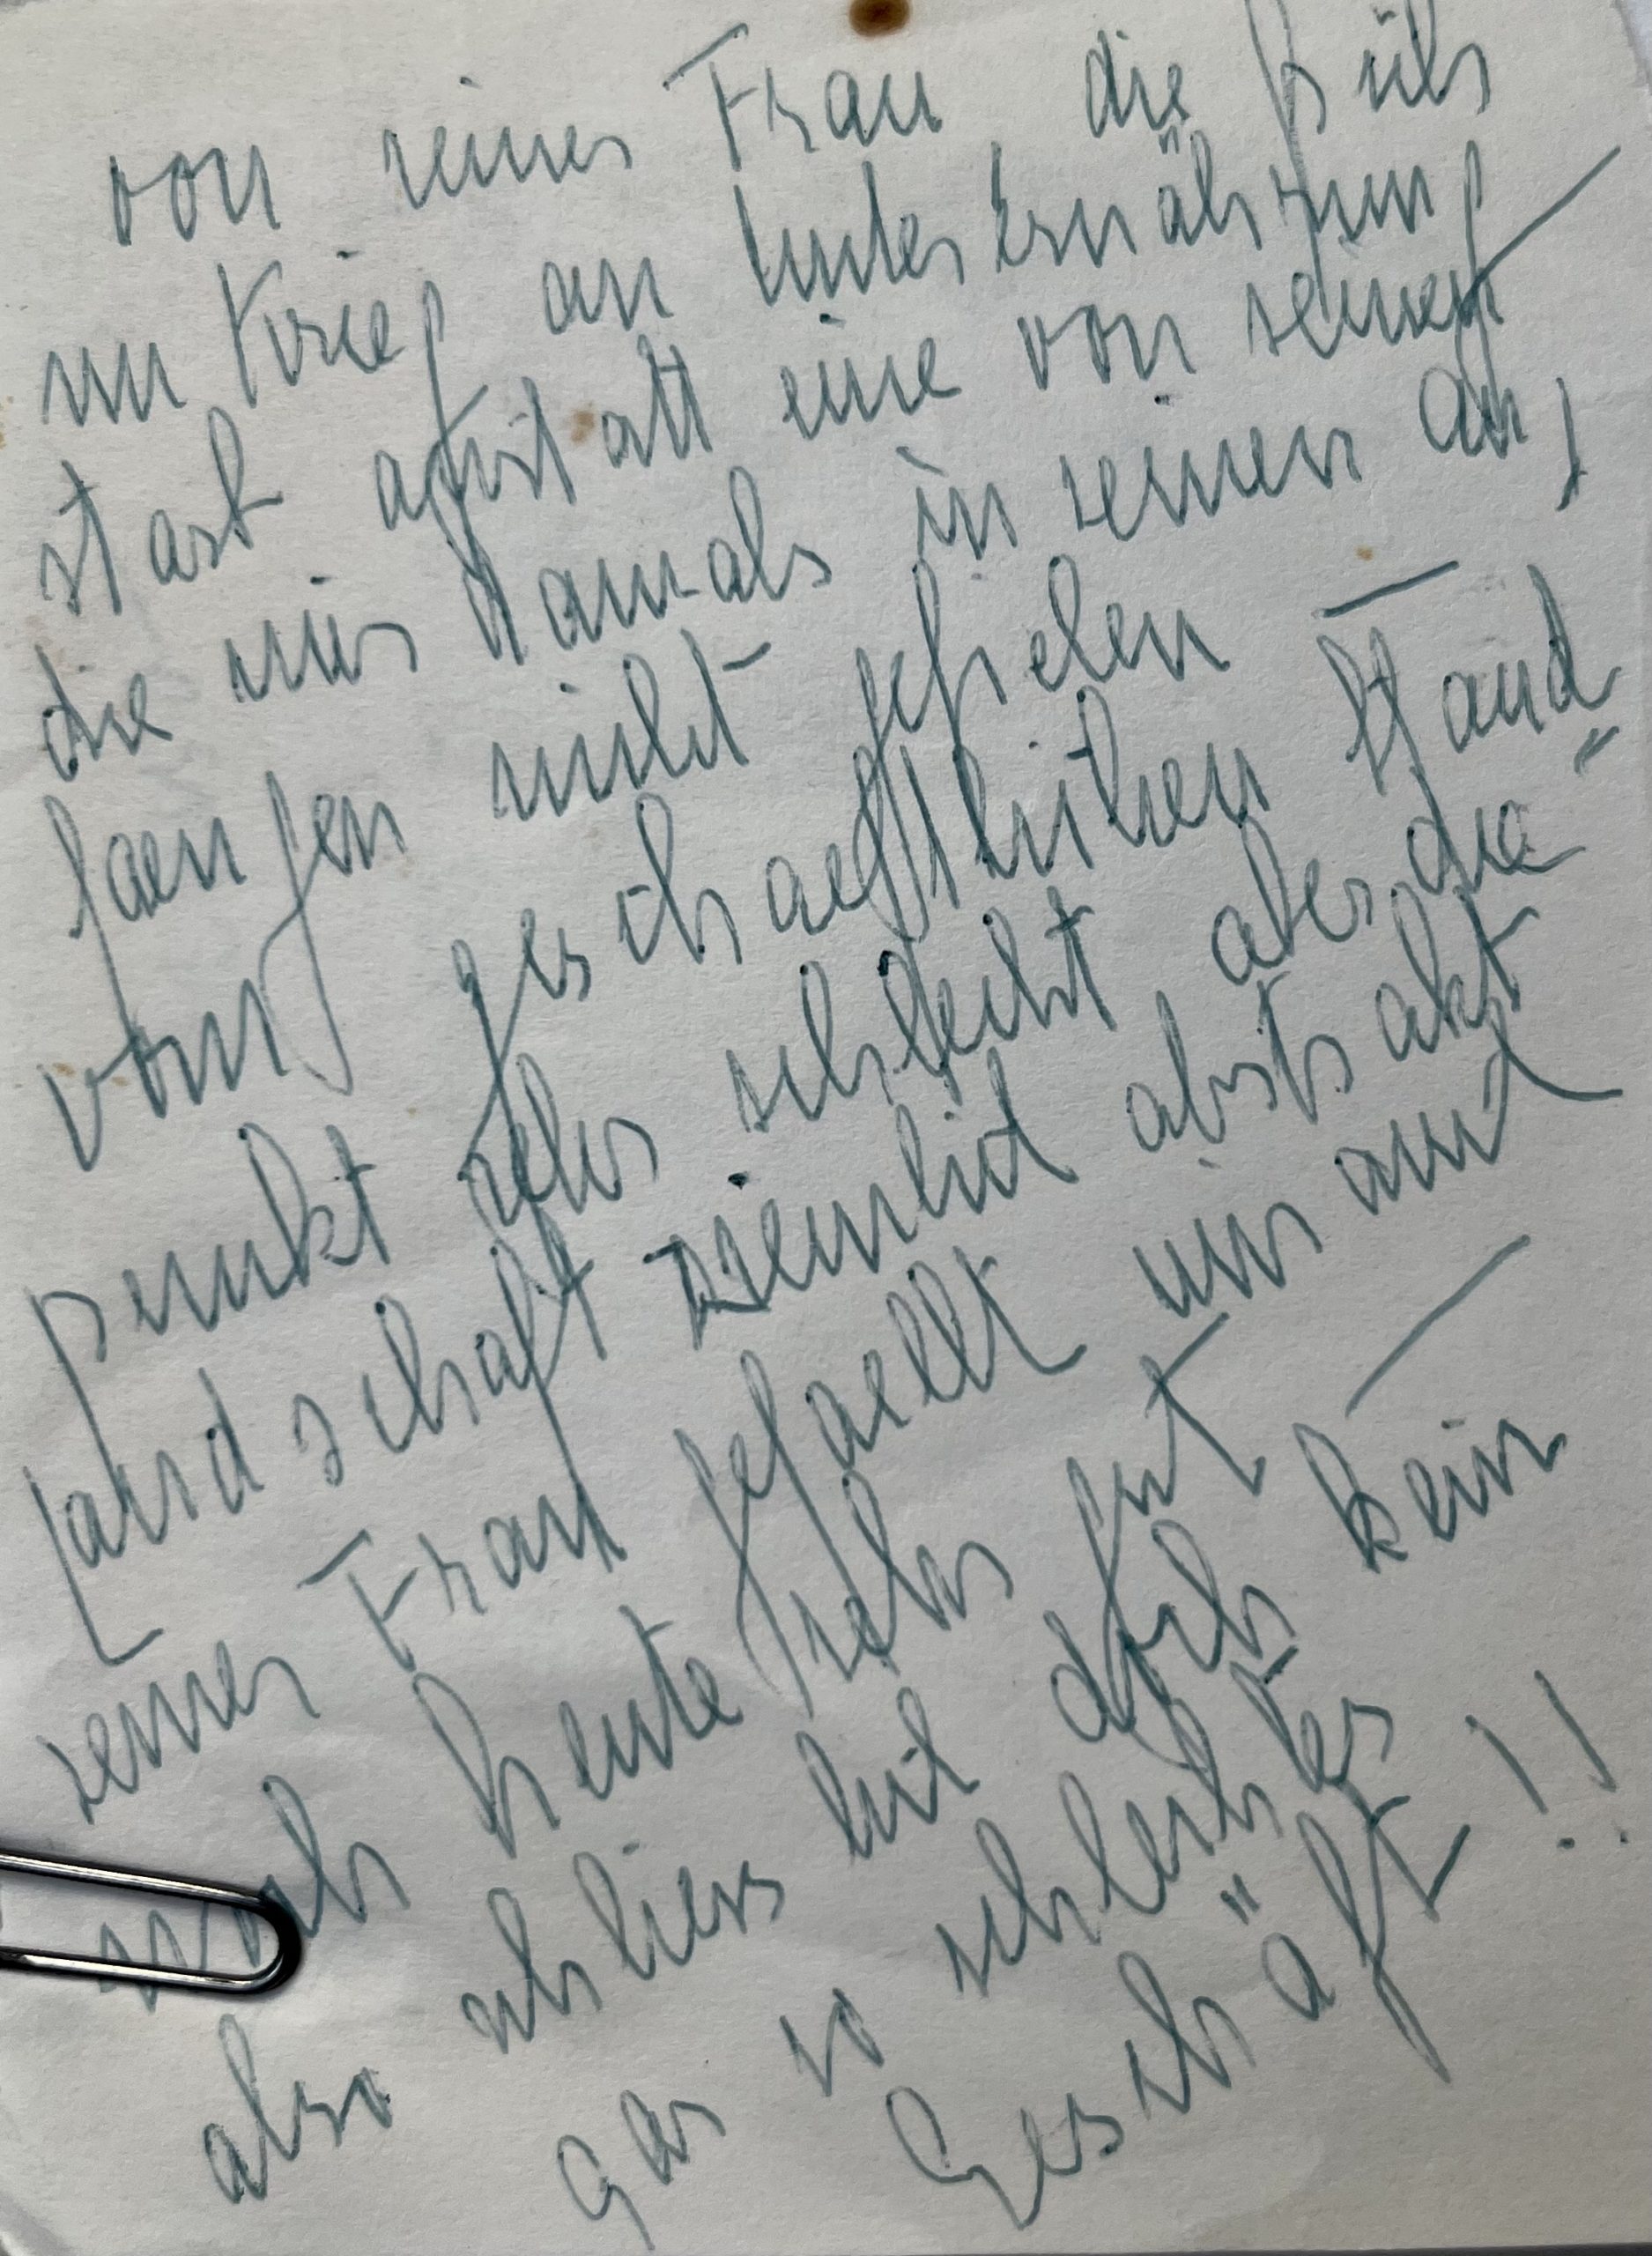 von seiner Frau die früh
im Krieg an Unterernährung
starb anstatt eine von seinen
die mir damals in seinen An,
faengen nicht gefielen —
vom geschaeftlichen Stand=
punkt sehr schlecht aber die
Landschaft ziemlich abstrakt
seiner Frau gefaellt mir und
heute sehr gut —
also schliesslich doch kein
gar so schlechtes
Geschäft!!